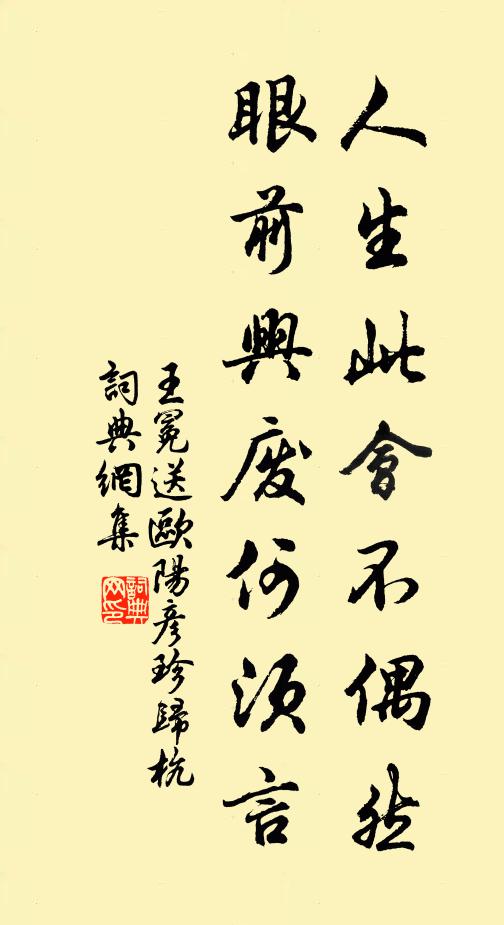 人生此會不偶然
眼前興廢何須言
王冕送歐陽彥珍歸杭
詞典網集
詞典網印